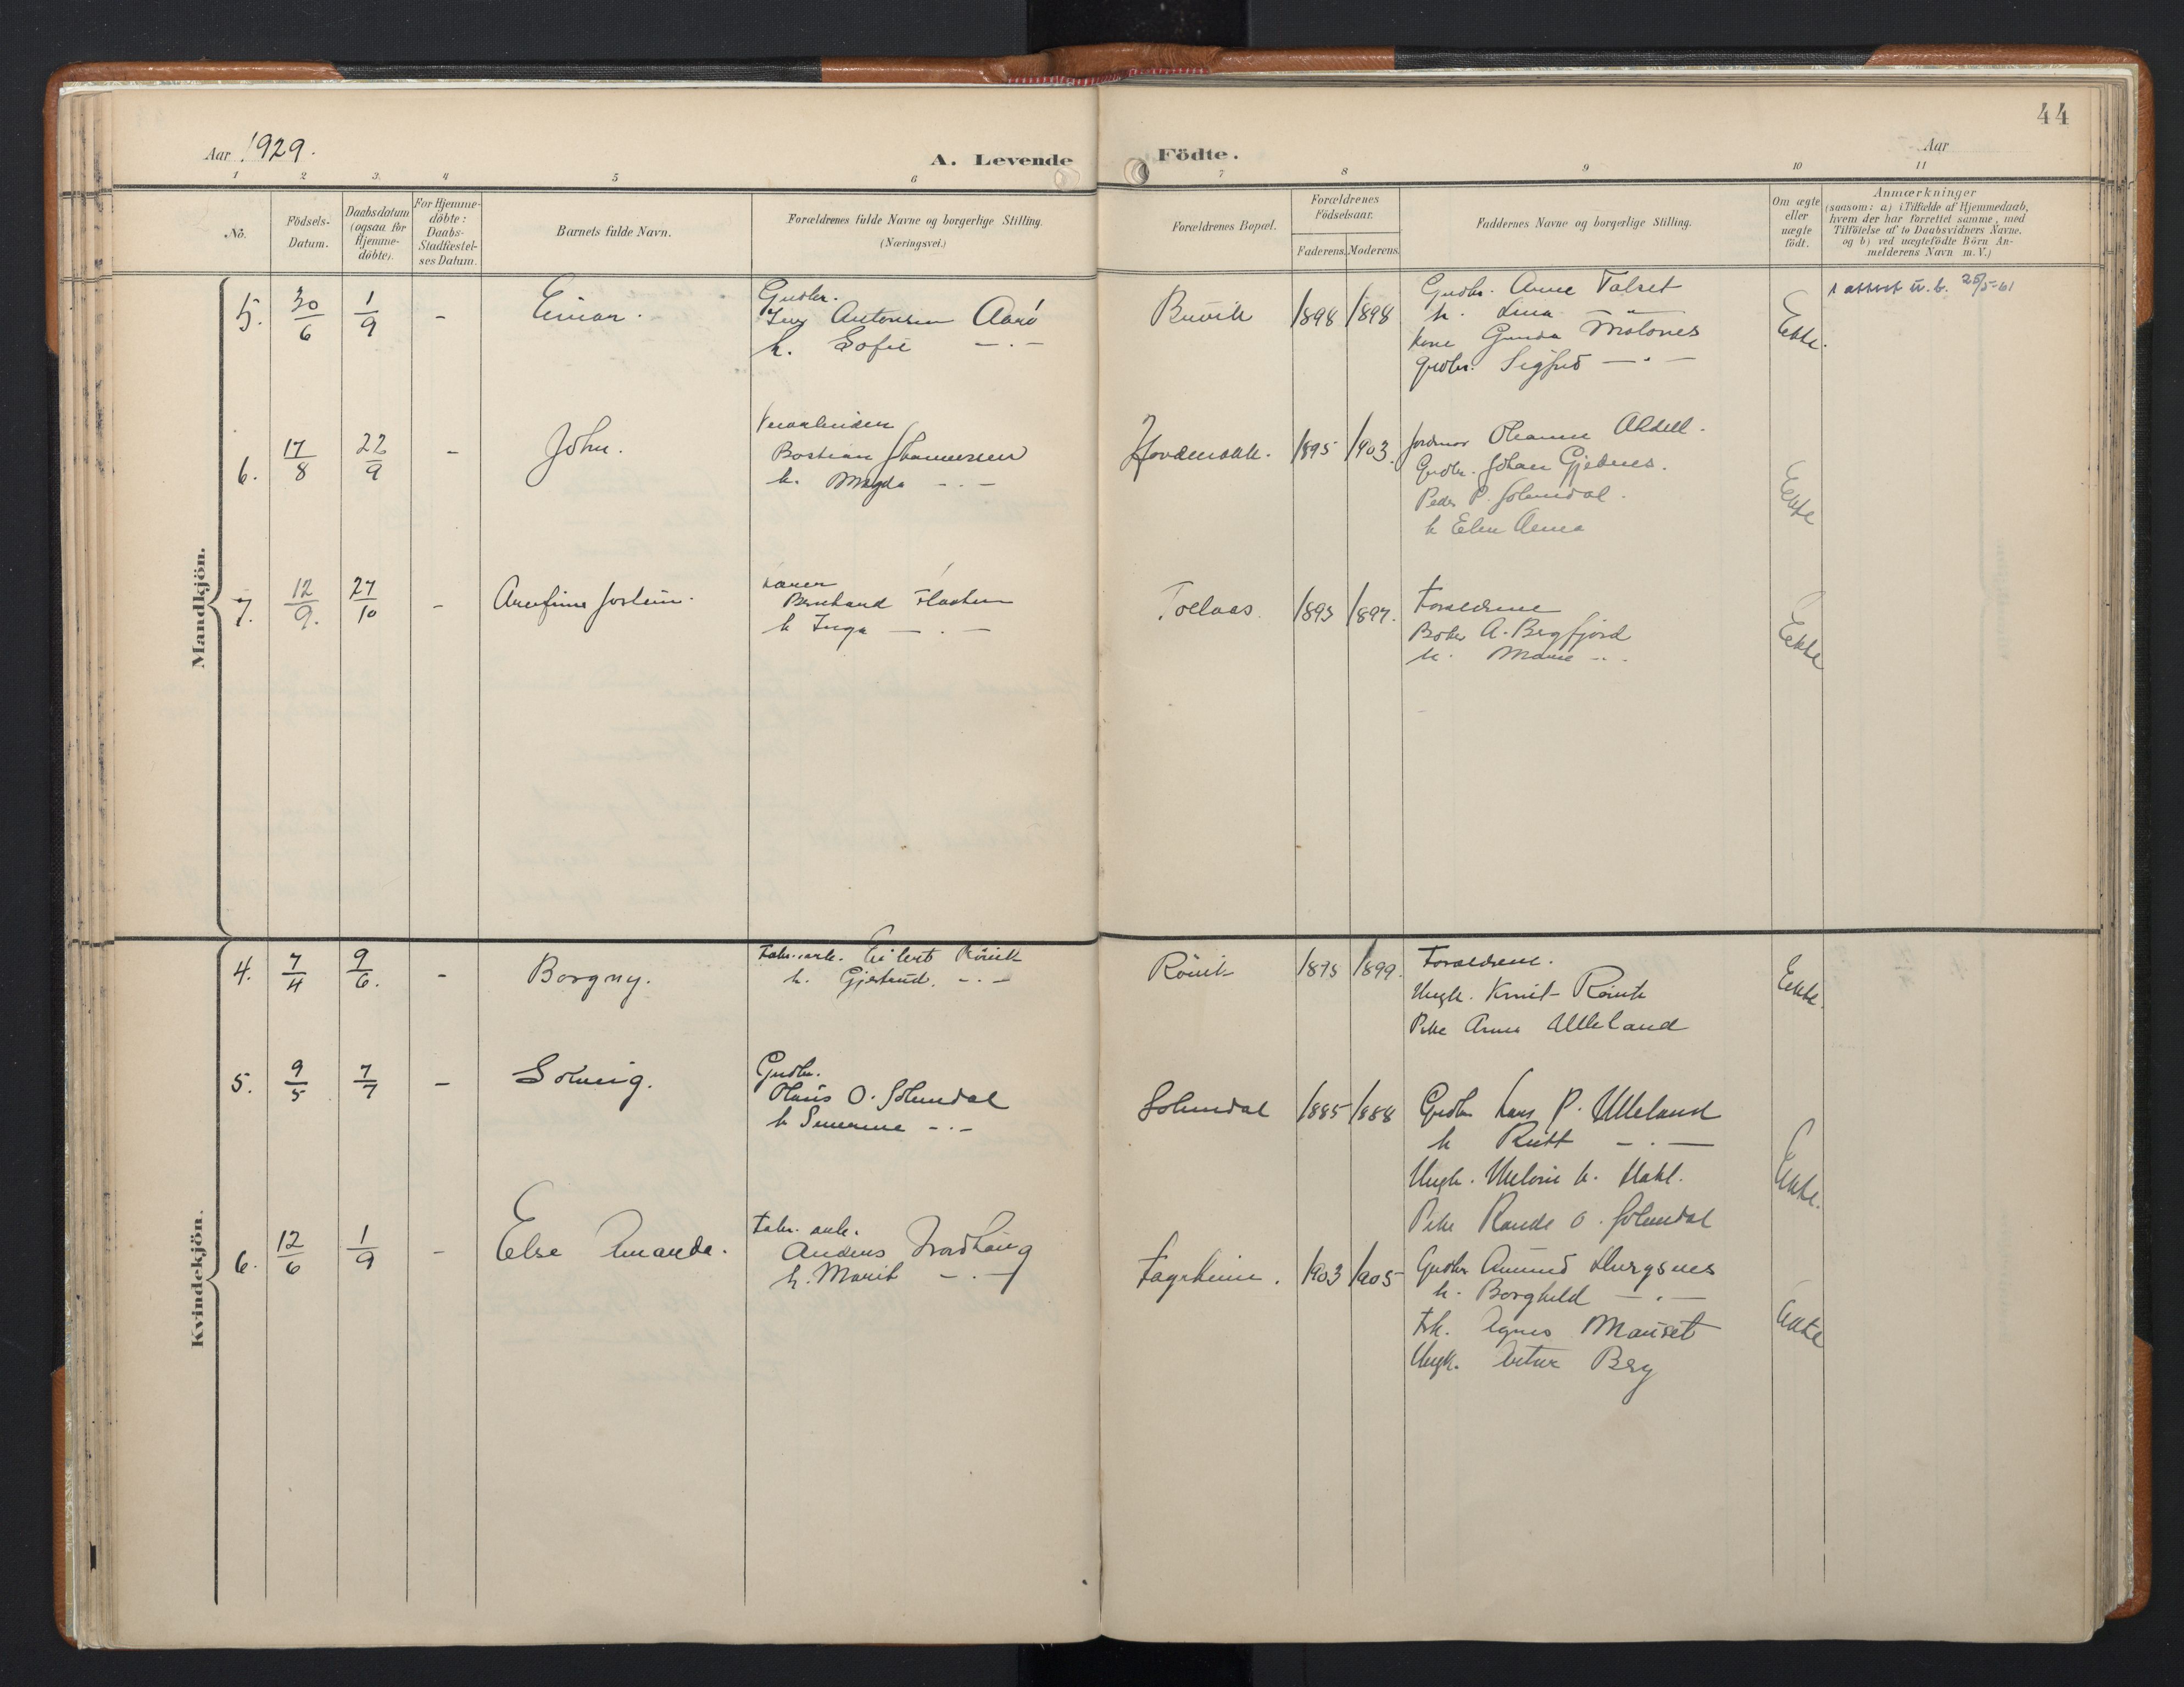 44
Aar 1929.
A. Levende Födte.
Aar
1 2 3. 4 5 6 7 8 9 10 11
No.
Födsels-Datum.
Daabsdatum (ogsaa for Hjemme-döbte).
For Hjemme-döbte: Daabs-Stadfæstel-ses Datum.
Barnets fulde Navn.
Forældrenes fulde Navne og borgerlige Stilling.
(Næringsvei.)
Forældrenes Bopæl.
Forældrenes Födselsaar.
Faderens. Moderens.
Faddernes Navne og borgerlige Stilling.
Om ægte eller uægte födt.
Anmærkninger
(saasom: a) i Tilfælde af Hjemmedaab,
hvem der har forrettet samme, med
Tilföielse af to Daabsvidners Navne,
og b) ved uægtefödte Börn An-
melderens Navn m.V.)
Mandkjön.
5. 30/6 1/9 - Einar. Gudbr. Antonsen Aarö Buvik 1898 1898 Gudbr. Anne Talset Ekte.
h. Sofie -.-
h. Lina -"-
kone Gunda
gudbr. Sigfred -.-
1 attest u.b. 25/5-61
6. 17/8 22/9 - John.
Bastian Johannessen
h. Magda -.-
1895 1903.
jordmor
Gudbr. Johan Gjednes.
Peder P. Solemdal.
h Elen Anna
Ekte
7. 12/9. 27/10 - Arnfinn Jostein.
Lærer
Bernhard Flaathen
h Inga -.-
Tollaas. 1893 1897.
Foreldrene
A. Bergfjord
h. Marie -.-
Ekte
Kvindekjön.
4. 7/4 9/6. - Borgny.
Fabr.arb. Eilert Rövik
h. Gjertrud. -.-
Rövik 1875 1899.
Foreldrene.
Ungk. Knut Rövik
Pike Anna Ulleland
Ekte
5. 9/5 7/7 - Solveig.
Gudbr.
Olaus O. Solemdal
h Severine -.-
Solemdal 1885 1888
Gudbr Lars P. Ulleland
h Rutt -.-
Ungk.
Pike Rande O. Solemdal
Ekte.
6. 12/6 1/9 - Else Amanda.
Fabr. arb.
Anders Nordhaug
h. Marit -.-
Fagerheim. 1903 1905
Gudbr Amund
h. Borghild -.-
Agnes Mauset
Ungk. Artur Berg
Ekte